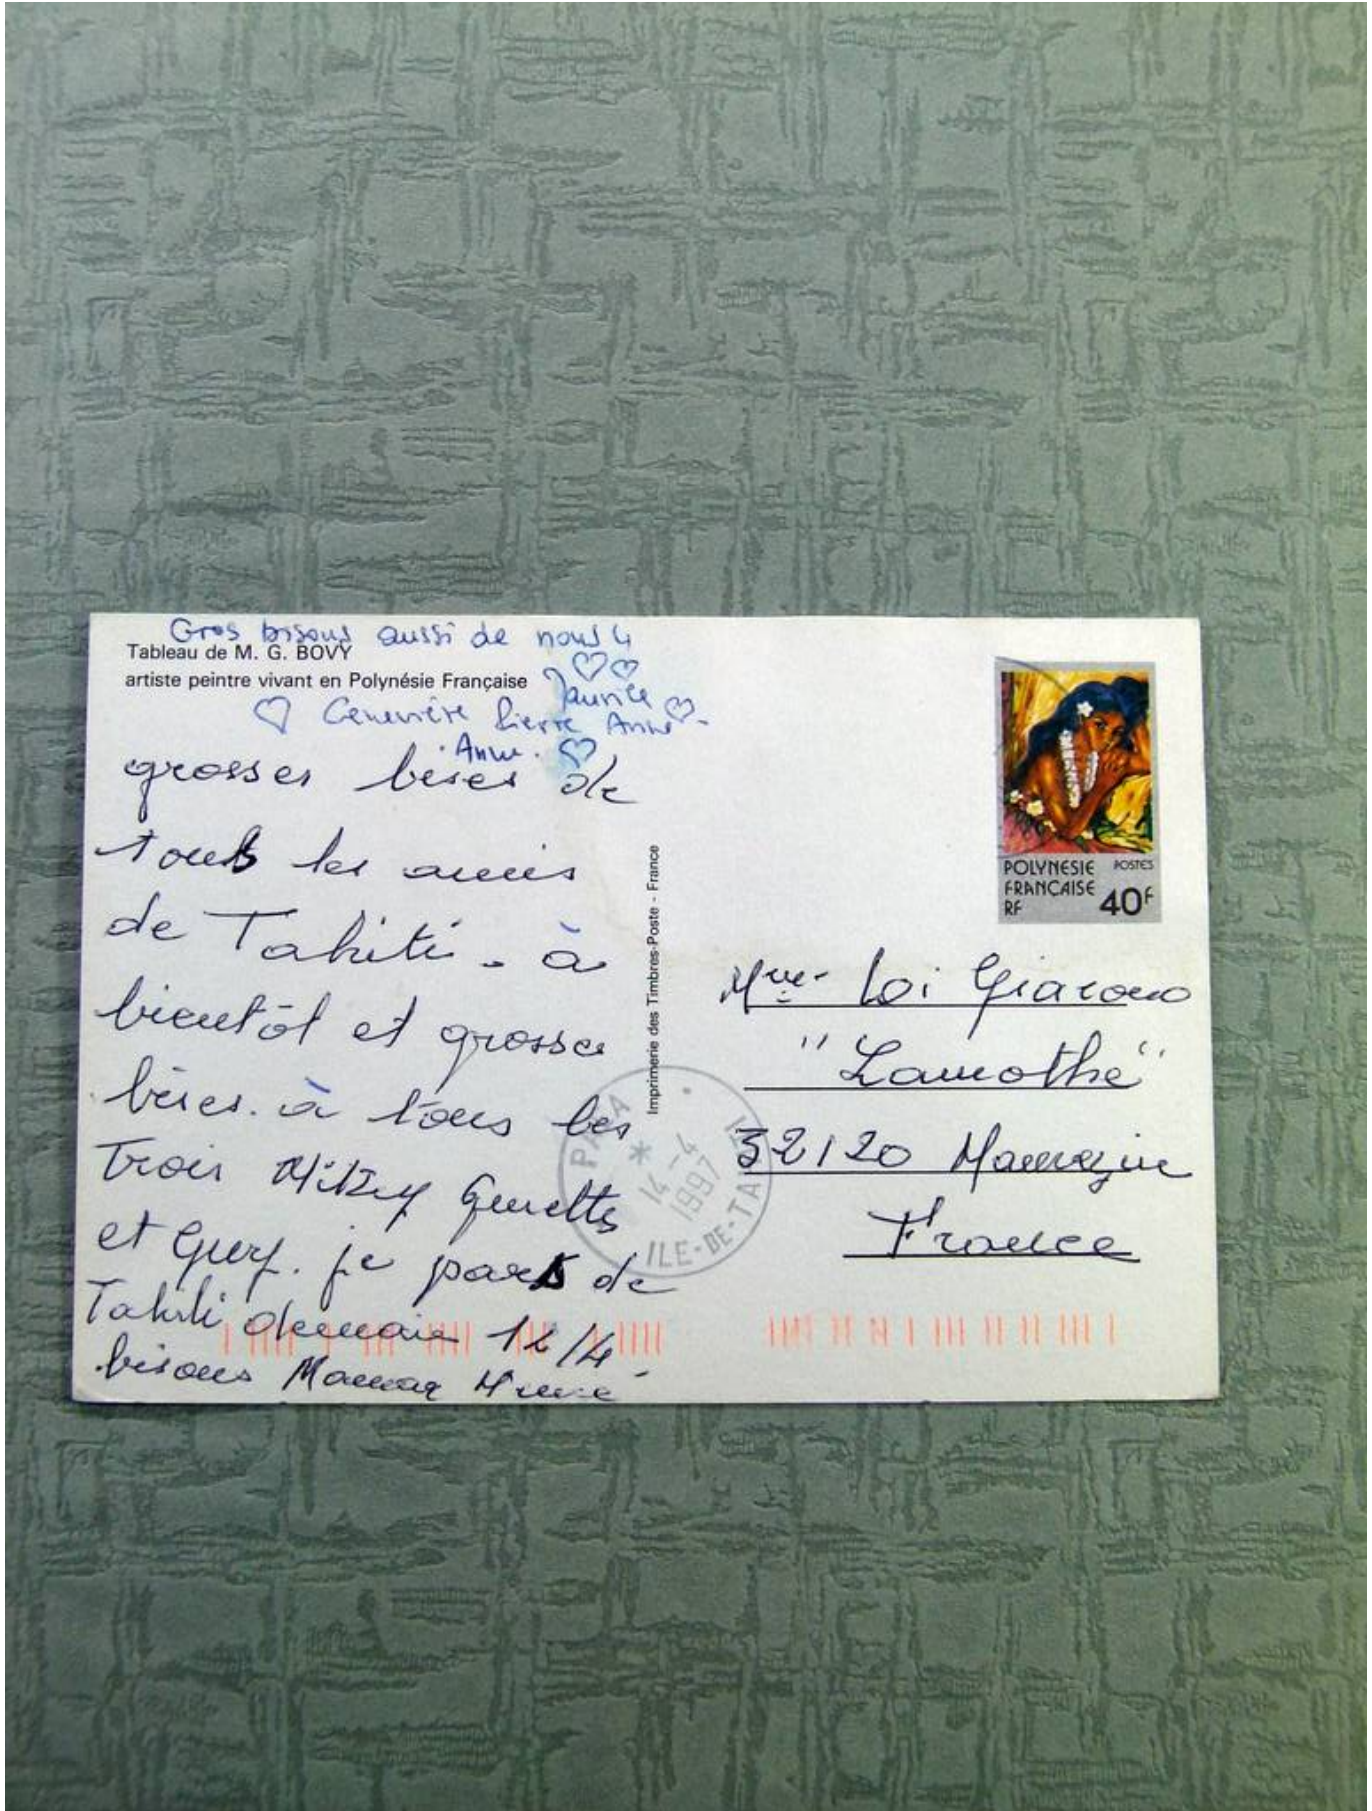 Gros bisous aussi de nous 4
Tableau de M. G. BOVY
artiste peintre vivant en Polynésie Française
Maurice
Geneviève Pierre Anne-
Anne.
grosses bises de
tous les amis
de Tahiti - à
bientôt et grosses
bises. à tous les
trois Mikey Guretts
et Guy. je pars de
Tahiti demain 12/4
bisous Maman
Imprimerie des Timbres-Poste - France
POLYNESIE POSTES
FRANÇAISE
RF 40F
Mme Loi
"Lamothe"
32120 Mauvezin
France
14-4
1997
ILE-DE-TAHITI